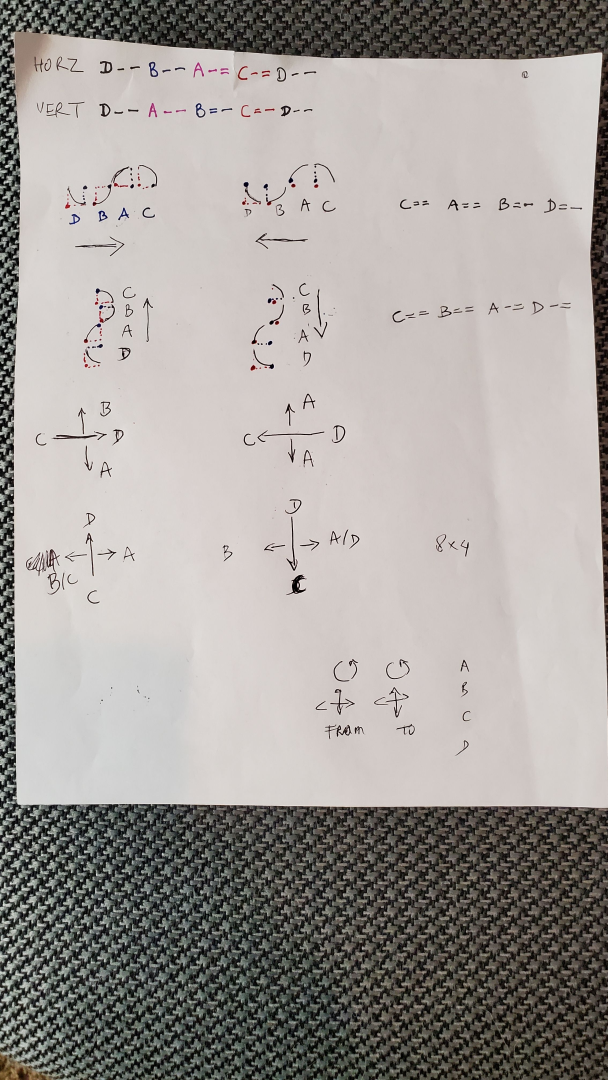 HORZ D-- B-- A-= C-= D--
VERT D-- A-- B=- C=- D--
D B A C
D B A C
C== A== B=- D=-
C
B
A
D
C
B
A
D
C== B== A-= D-=
B
C D
A
A
C D
A
D
A
B/C
C
D
B A/D
C
8x4
A
B
C
D
FROM TO